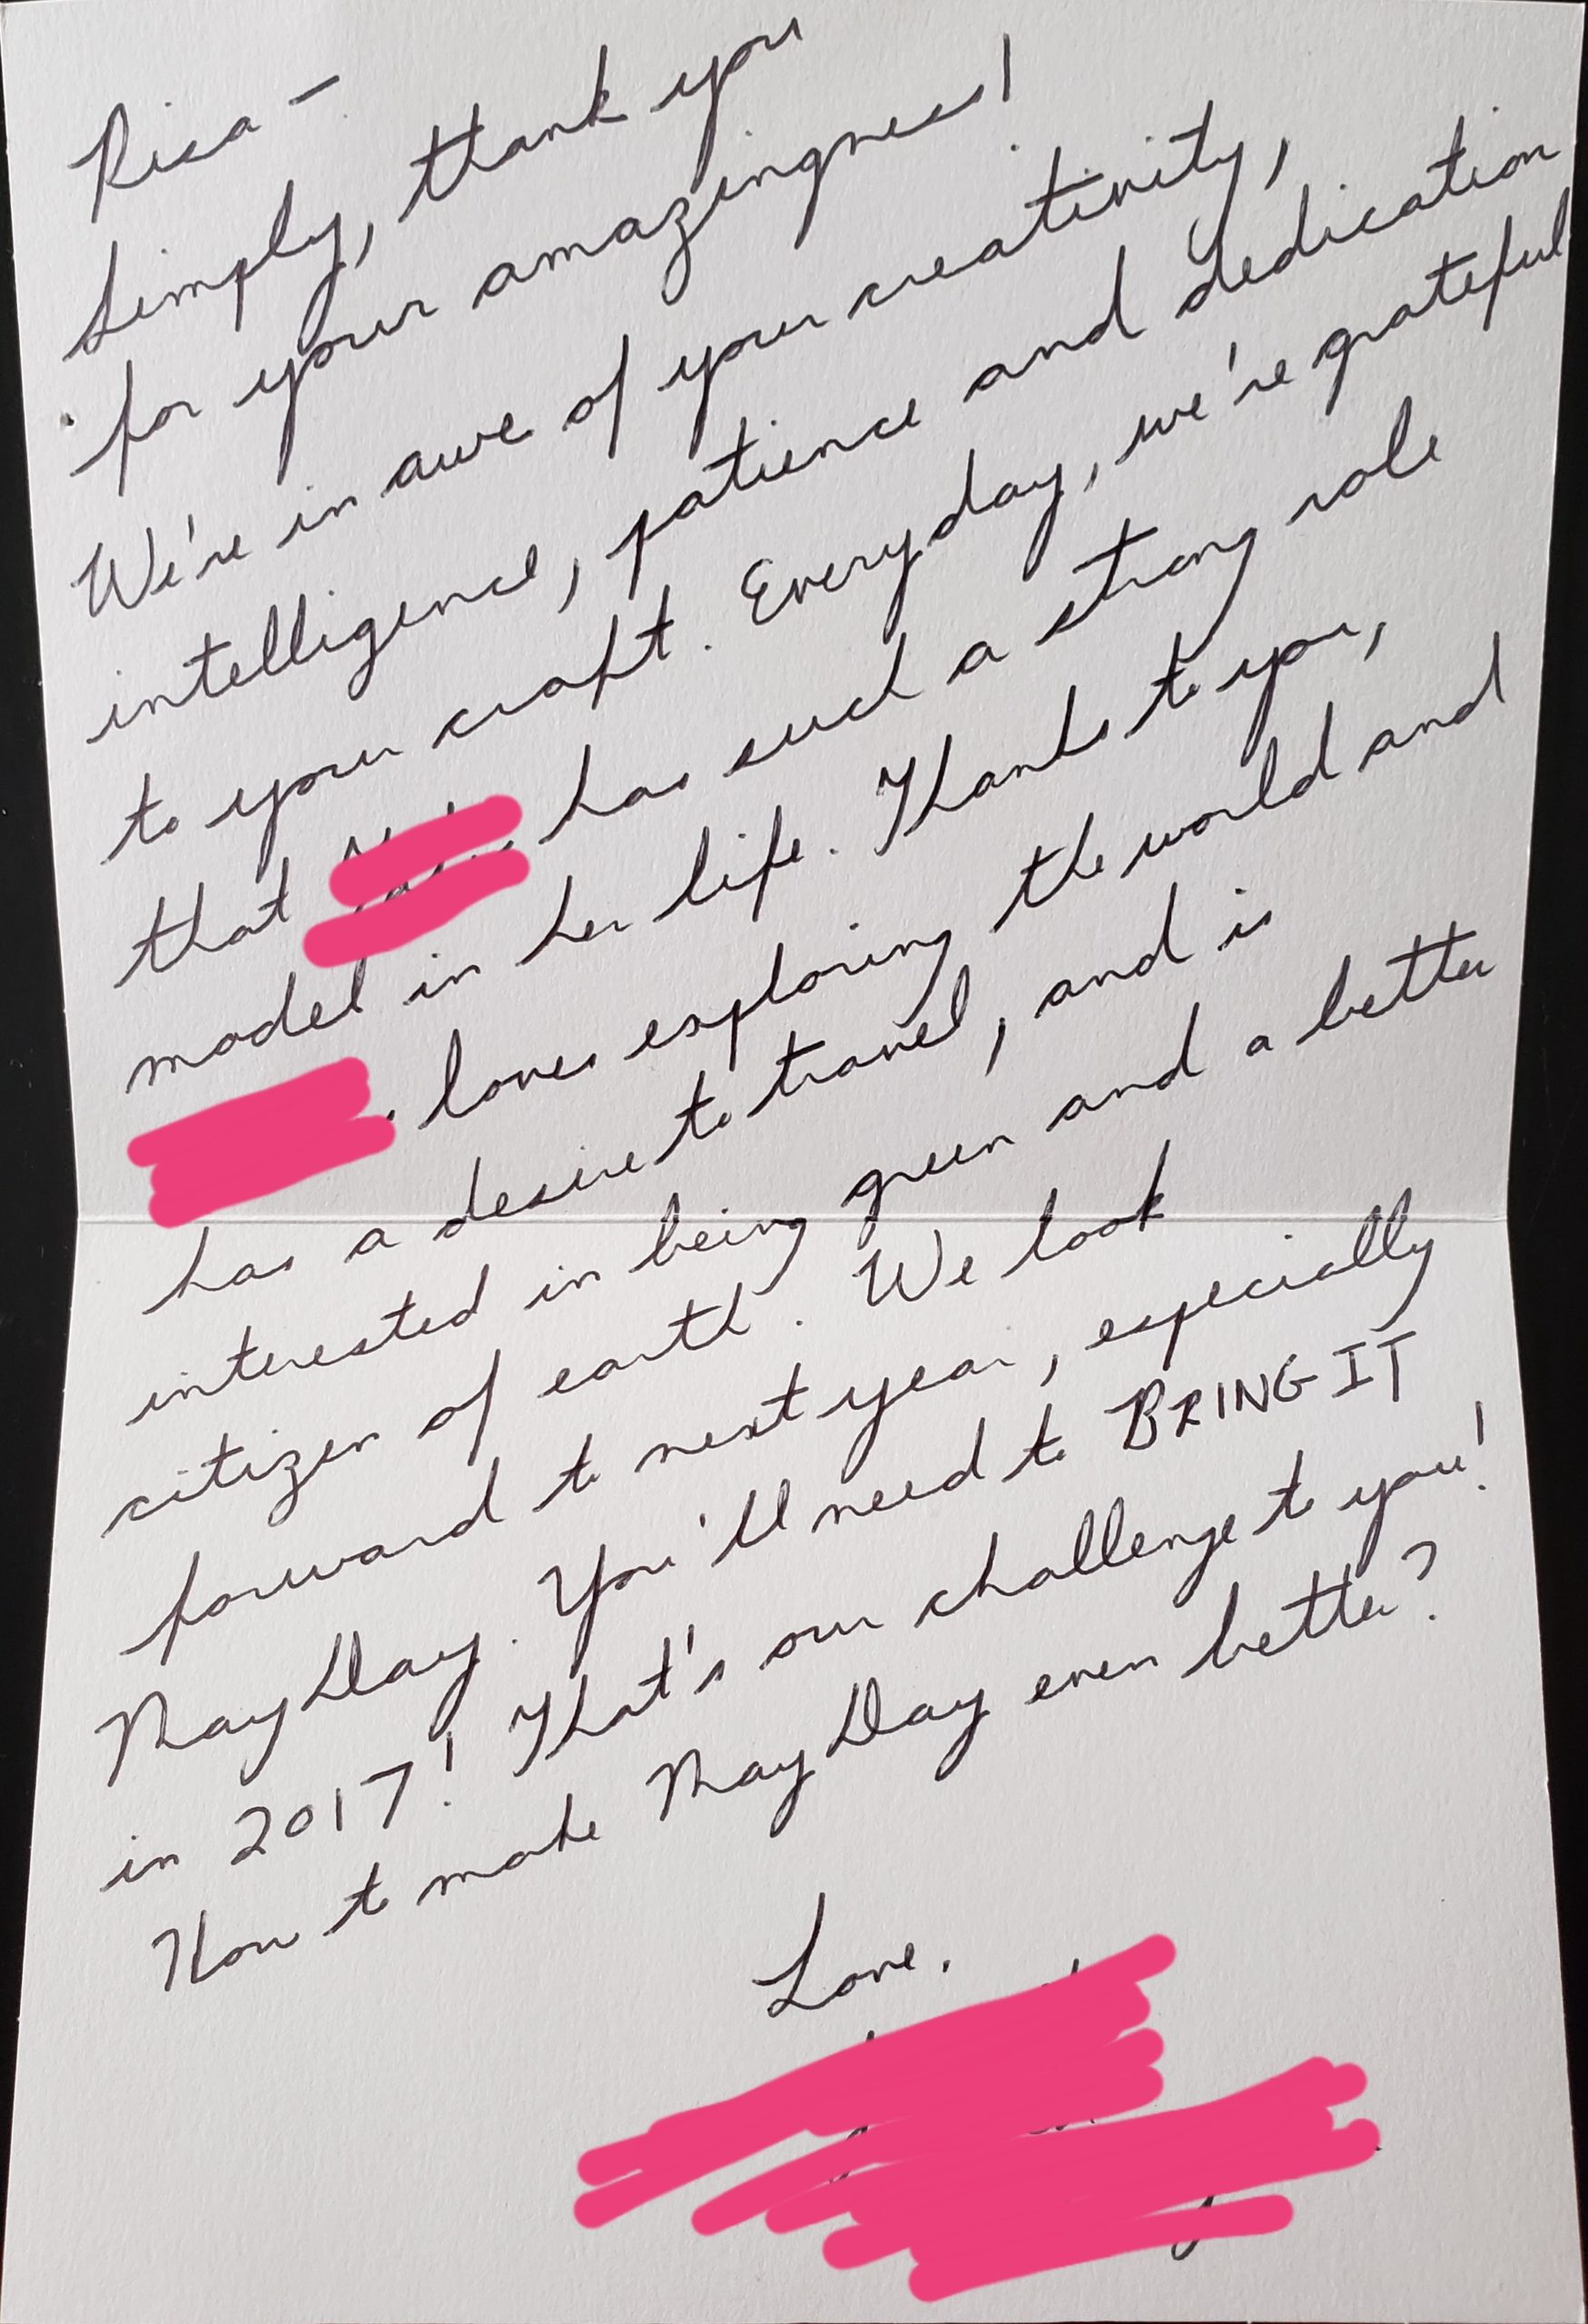 Risa –
Simply, thank you
for your amazingness!
We're in awe of your creativity,
intelligence, patience and dedication
to your craft. Everyday, we're grateful
that has such a strong role
model in her life. Thanks to you,
loves exploring the world and
has a desire to travel, and is
interested in being green and a better
citizen of earth. We look
forward to next year, especially
May Day. You'll need to BRING IT
in 2017! That's our challenge to you!
How to make May Day even better?
Love,